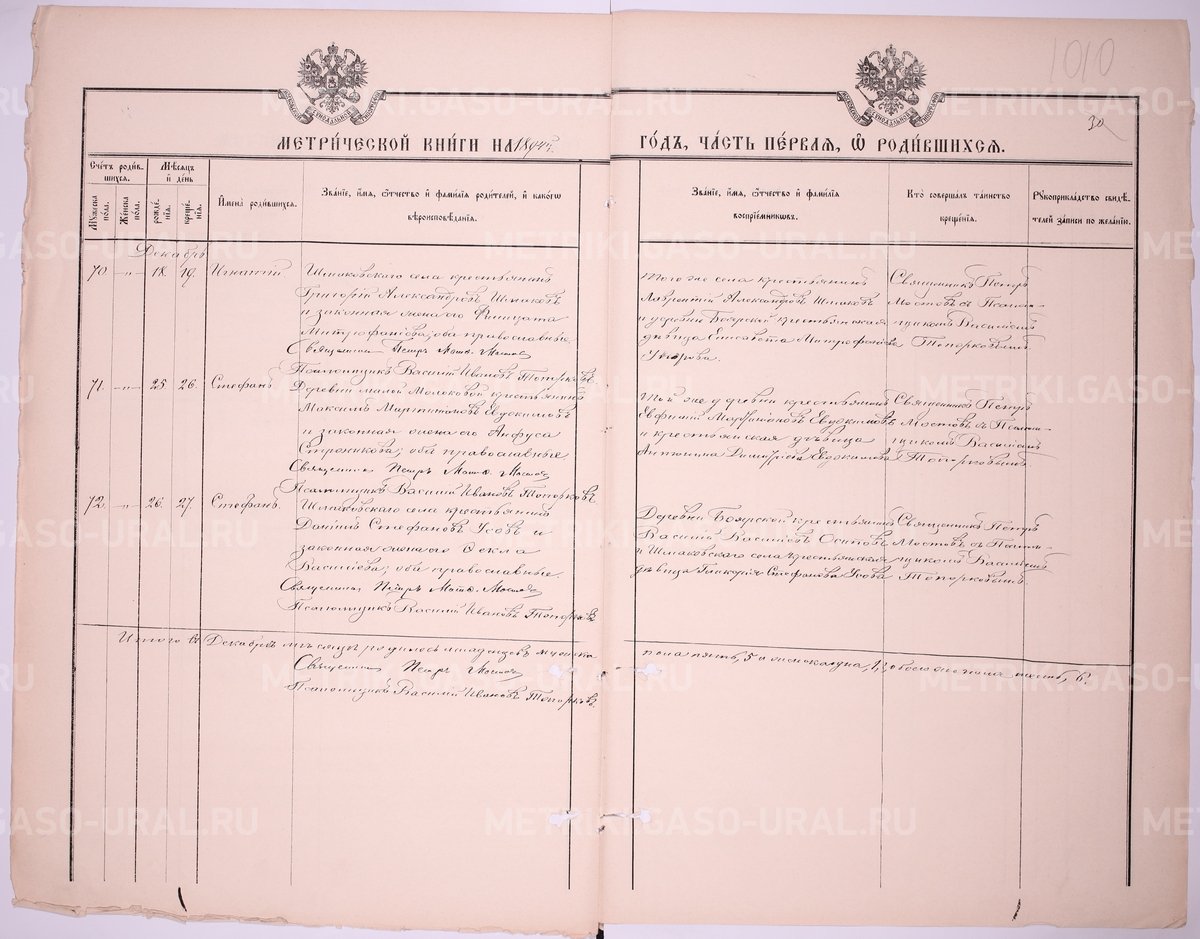 1010
30
МЕТРИ́ЧЕСКОЙ КНИ́ГИ НА 1894 г.
ГО́ДЪ, ЧА́СТЬ ПЕ́РВАЯ, Ѡ РОДИ́ВШИХСЯ.
Сче́тъ роди́вшихся.
Мѣ́сяцъ и҆ де́нь
Мꙋ́жеска по́ла.
Же́нска по́ла.
рожде́нїѧ.
креще́нїѧ.
И҆мена̀ роди́вшихсѧ.
Зва́нїе, и҆́мѧ, ѻ҆́тчество и҆ фами́лїѧ роди́телей, и҆ како́гѡ
вѣроисповѣ́данїѧ.
Зва́нїе, и҆́мѧ, ѻ҆́тчество и҆ фами́лїѧ
воспрїе́мникѡвъ.
Кто̀ соверша́лъ та́инство
креще́нїѧ.
Рꙋкоприкла́дство свидѣ́телей за́писи по жела́нїю.
Декабрь
70. -„- 18. 19. Игнатий
Шмаковскаго села крестьянинъ
Григорій Александровъ Шмаковъ
и законная жена его
Митрофанова; оба православные.
Священникъ Петръ Мостовъ
Псаломщикъ Василій Ивановъ Топорковъ.
Того же села крестьянинъ
Лаврентій Александровъ Шмаковъ
и деревни Боярской крестьянская
дѣвица Елисавета Митрофанова
Священникъ Петръ
Мостовъ съ Псалом-
щикомъ Василіемъ
Топорковымъ.
71. -„- 25. 26. Стефанъ
Деревни малой Молоковой крестьянинъ
Максимъ Евдокимовъ
и законная жена его Анфуса
оба православные
Священникъ Петръ Мостовъ
Псаломщикъ Василій Ивановъ Топорковъ.
Той же деревни крестьянинъ
Евфимій Евдокимовъ
и крестьянская дѣвица
Антонина Димитріева Евдокимова
Священникъ Петръ
Мостовъ съ Псалом-
щикомъ Василіемъ
Топорковымъ.
72. -„- 26. 27. Стефанъ
Шмаковскаго села крестьянинъ
Даніилъ Стефановъ Усовъ и
законная жена его Ѳекла
Васильева; оба православные.
Священникъ Петръ Мостовъ
Псаломщикъ Василій Ивановъ Топорковъ
Деревни Боярской крестьянинъ
Василій Васильевъ Осиповъ
и Шмаковскаго села крестьянская
дѣвица Гликерія Стефанова Усова
Священникъ Петръ
Мостовъ съ Псалом-
щикомъ Василіемъ
Топорковымъ.
Итого въ Декабрѣ мѣсяцѣ родилось младенцевъ мужска
пола пять, 5 а женска одна, 1; обоего пола шесть, 6.
Священникъ Петръ Мостовъ
Псаломщикъ Василій Ивановъ Топорковъ.
METRIKI.GASO-URAL.RU